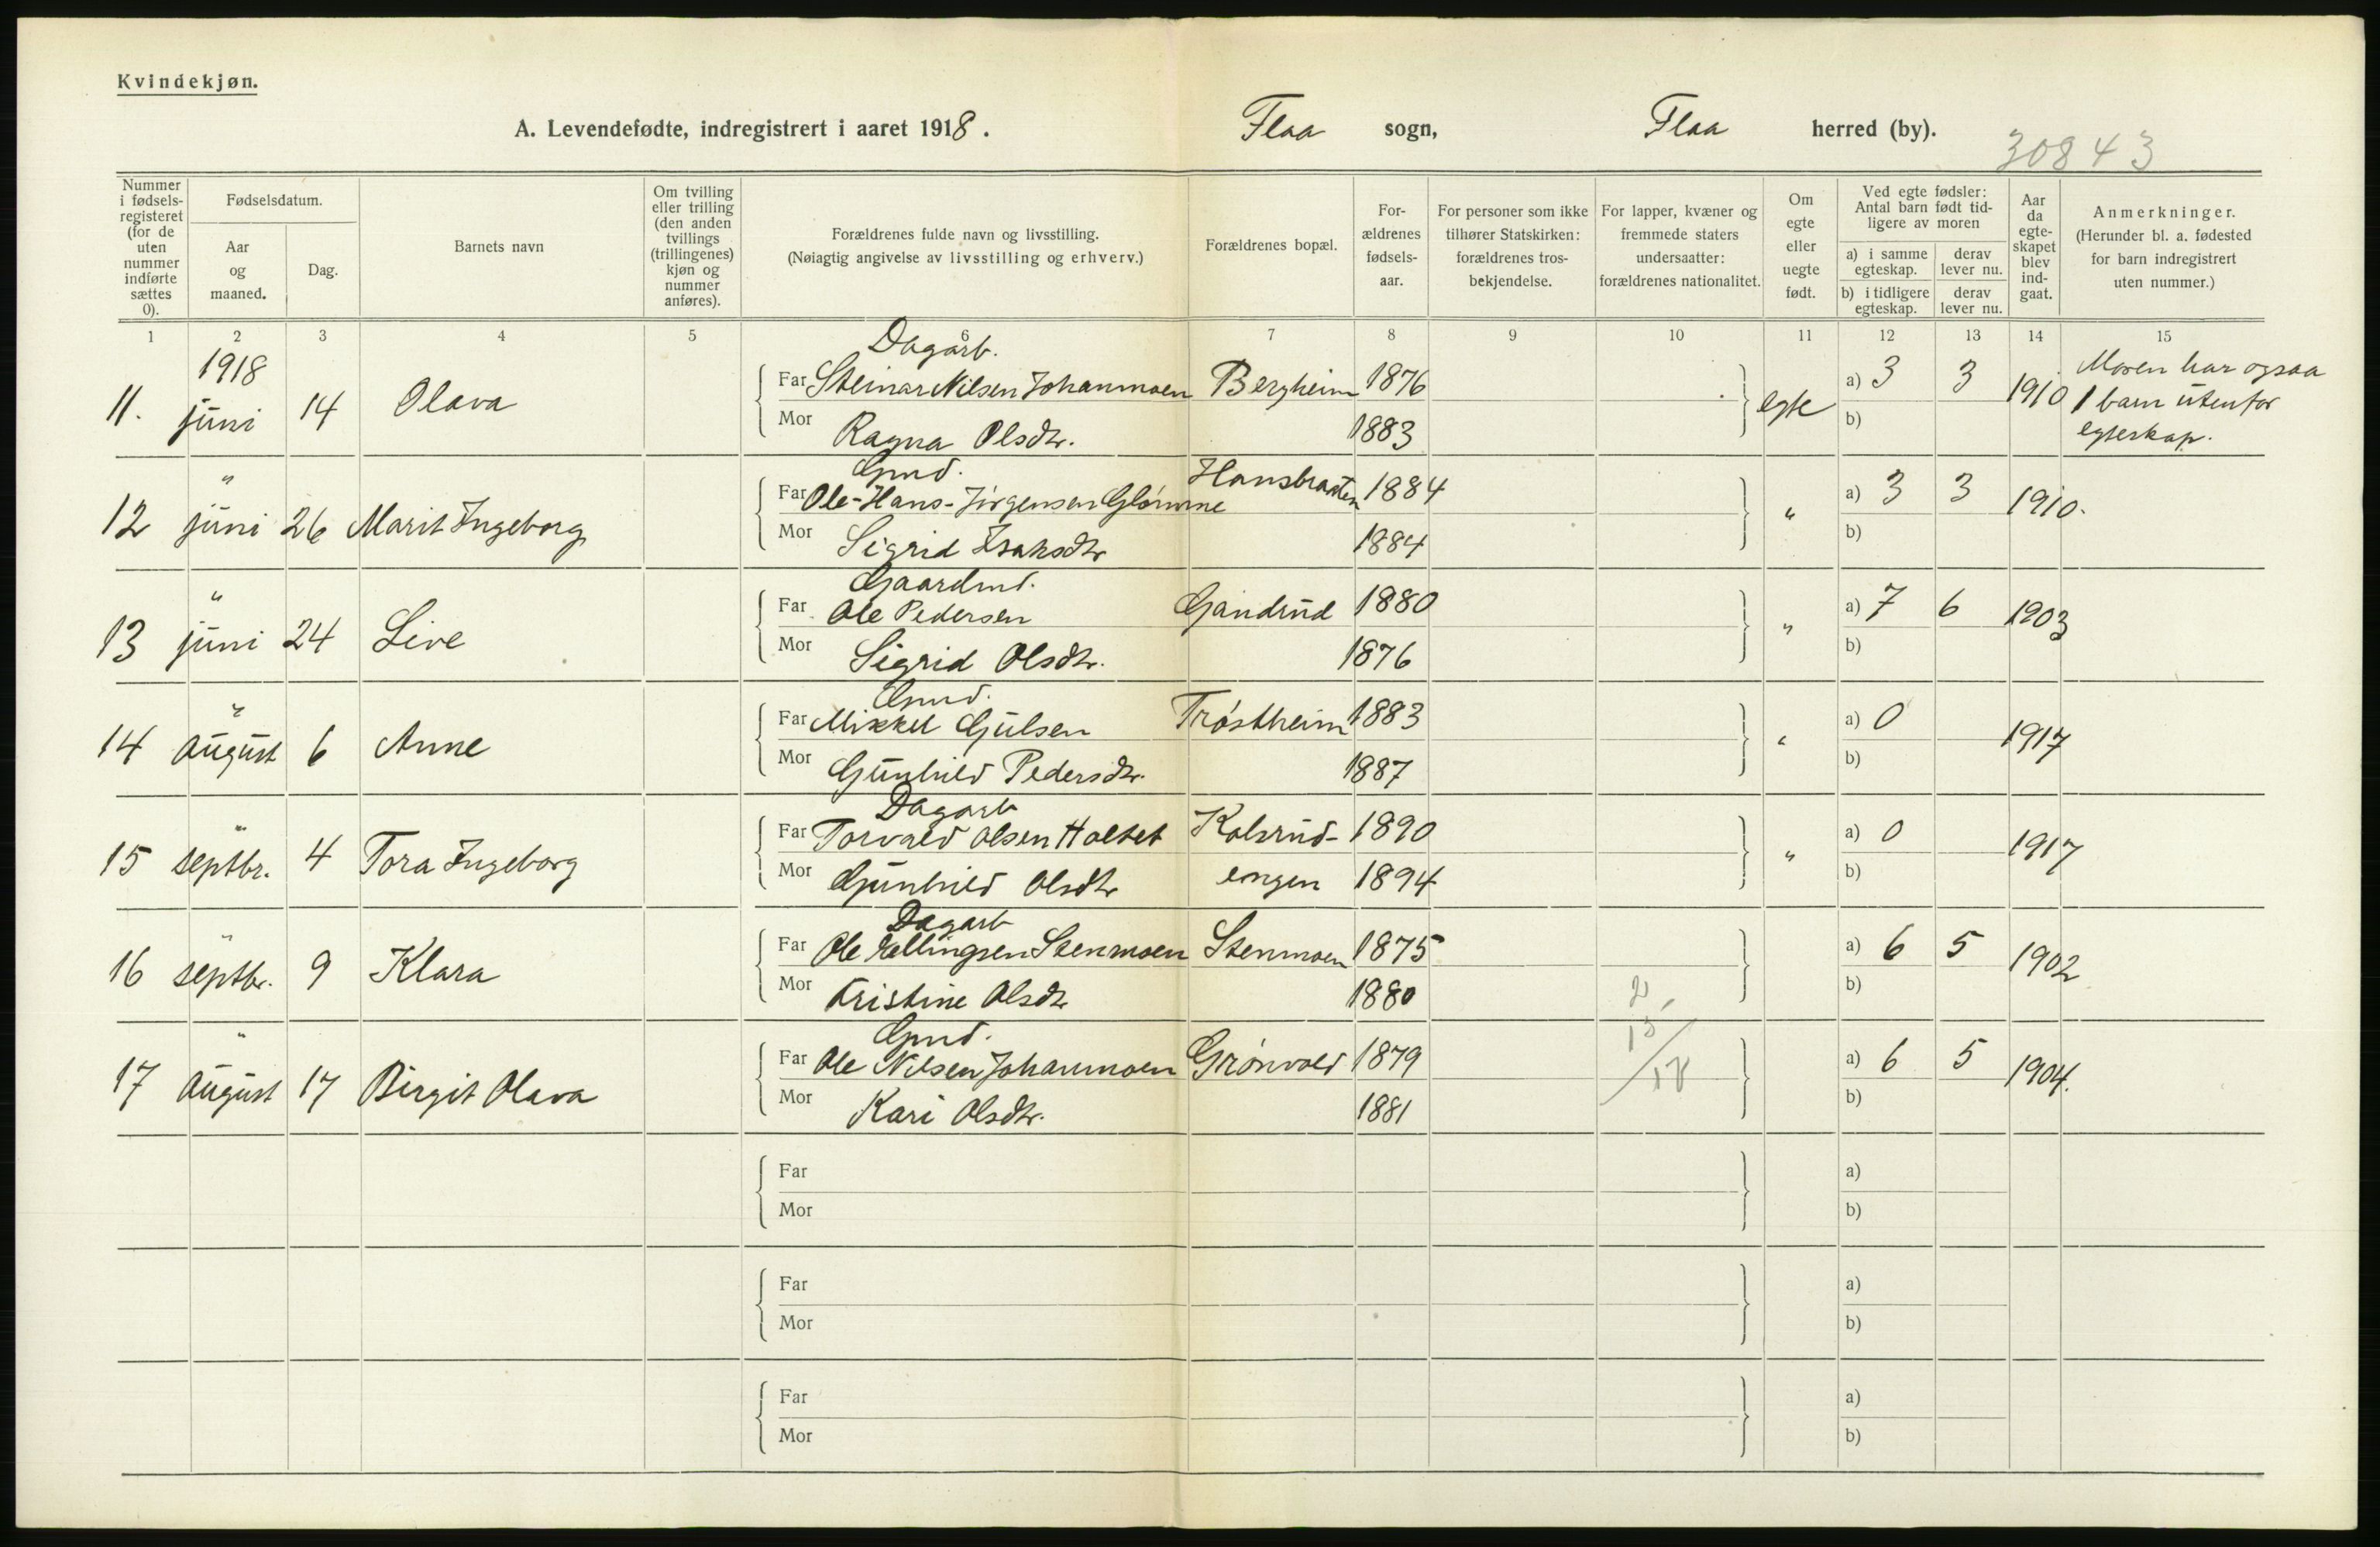 Kvindekjøn.
A. Levendefødte, indregistrert i aaret 1918. Flaa sogn, Flaa herred (by).
30843
Nummer i fødsels-registeret (for de uten nummer indførte sættes 0).
Fødselsdatum.
Aar og maaned.
Dag.
Barnets navn
Om tvilling eller trilling (den anden tvillings (trillingenes) kjøn og nummer anføres).
Forældrenes fulde navn og livsstilling.
(Nøiagtig angivelse av livsstilling og erhverv.)
Forældrenes bopæl.
For-ældrenes fødsels-aar.
For personer som ikke tilhører Statskirken: forældrenes tros-bekjendelse.
For lapper, kvæner og fremmede staters undersaatter: forældrenes nationalitet.
Om egte eller uegte født.
Ved egte fødsler: Antal barn født tid-ligere av moren
a) i samme egteskap.
derav lever nu.
b) i tidligere egteskap.
derav lever nu.
Aar da egte-skapet blev ind-gaat.
Anmerkninger.
(Herunder bl. a. fødested for barn indregistrert uten nummer.)
1 2 3 4 5 6 7 8 9 10 11 12 13 14 15
1918 Dagarb.
11. juni 14 Olava Far Steinar Nilsen Johanmoen Bergheim 1876 egte a) 3 3 1910 Moren har ogsaa
1 barn utenfor
egteskap.
Mor Ragna Olsdtr. 1883 b)
" Gmd.
12 juni 26 Marit Ingeborg Far Ole-Hans-Jörgensen Glömme Hansbraaten 1884 " a) 3 3 1910.
Mor Sigrid Isaksdtr 1884 b)
" Gaardmd.
13 juni 24 Live Far Ole Pedersen Gandrud 1880 " a) 7 6 1903
Mor Sigrid Olsdtr. 1876 b)
" Gmd.
14 august 6 Anne Far Mikkel Gulsen Trøstheim 1883 " a) 0 1917
Mor Gunhild Pedersdtr. 1887 b)
" Dagarb
15 septbr. 4 Tora Ingeborg Far Torvald Olsen Holtet Kolsrud- 1890 " a) 0 1917
Mor Gunhild Olsdtr engen 1894 b)
" Dagarb
16 septbr. 9 Klara Far Ole Ellingsen Stenmoen Stenmoen 1875 a) 6 5 1902
Mor Kristine Olsdtr 1880 b)
" Gmd.
17 august 17 Birgit Olava Far Ole Nilsen Johanmoen Grönvold 1879 a) 6 5 1904.
Mor Kari Olsdtr. 1881 b)
Far a)
Mor b)
Far a)
Mor b)
Far a)
Mor b)